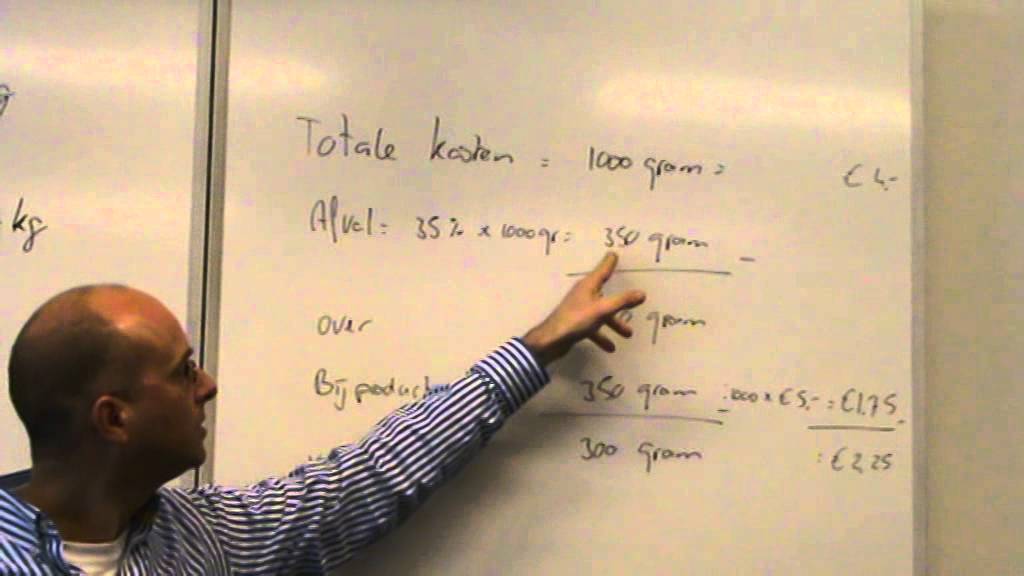 g
kg
Totale kosten = 1000 gram = € 4,-
Afval = 35% x 1000gr = 350 gram -
over 0 gram
Bijproducten 350 gram - :1000 x € 5,- = €1,75 -
300 gram : € 2,25